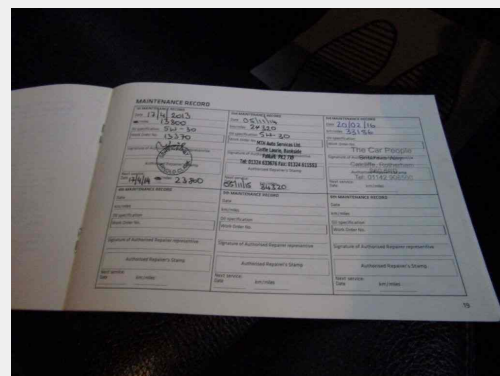 MAINTENANCE RECORD
Date 17/4/2013
13800
Oil specification 5W-30
Work Order No. 13370
Signature of Authorised Repairer
Next service:
23800
Date 05/11/14
24320
Oil specification 5W-30
Work Order No.
MTH Auto Services Ltd.
Castle Laurie, Bankside
Falkirk FK2 7XF
Tel: 01324 633678 Fax: 01324 613593
Authorised Repairer's Stamp
Next service:
05/11/15 34320
Date 20/02/16
33156
Oil specification
Work Order No.
The Car People
Tel: 01142
4th MAINTENANCE RECORD
Date
km/miles
Oil specification
Work Order No.
Signature of Authorised Repairer representative
Authorised Repairer's Stamp
Next service:
Date km/miles
5th MAINTENANCE RECORD
Date
km/miles
Oil specification
Work Order No.
Signature of Authorised Repairer representative
Authorised Repairer's Stamp
Next service:
Date km/miles
6th MAINTENANCE RECORD
Date
km/miles
Oil specification
Work Order No.
Signature of Authorised Repairer representative
Authorised Repairer's Stamp
Next service:
Date km/miles